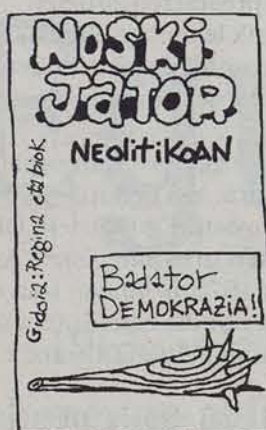 NOSKi
JATOR
NEOlitiKoAN
Gidoia: Regina eta biok
Badator
DEMOKRAZiA!!